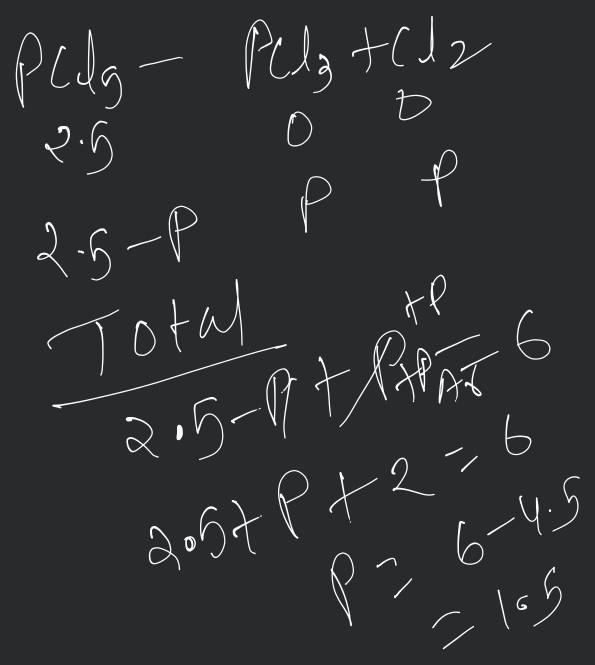 PCl5 — PCl3 + Cl2
2.5 0 0
2.5 - P P P
Total
+P
2.5 - P + P + P Ar = 6
2.5 + P + 2 = 6
P = 6 - 4.5
= 1.5